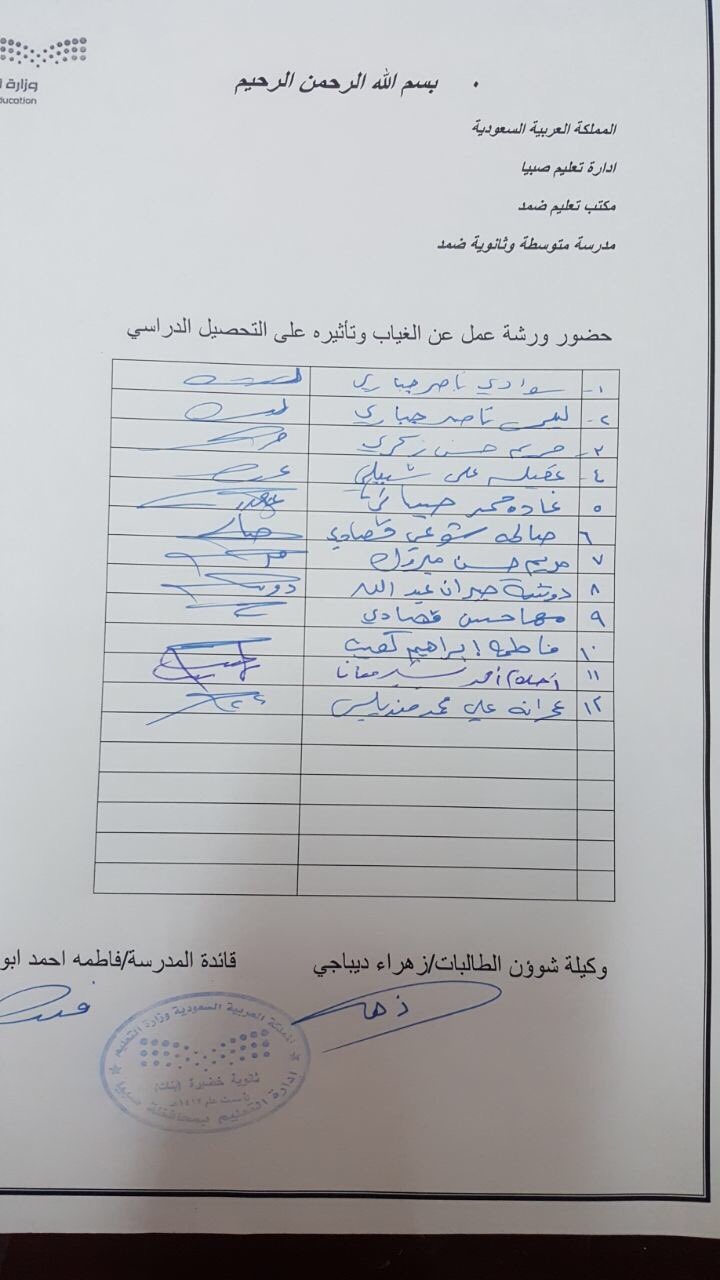 وزارة
ducation
بسم الله الرحمن الرحيم
المملكة العربية السعودية
ادارة تعليم صبيا
مكتب تعليم ضمد
مدرسة متوسطة وثانوية ضمد
حضور ورشة عمل عن الغياب وتأثيره على التحصيل الدراسي
١- سوادي ناصر جباري
٢- ليلى ناصر جباري
٣- مريم حسن زكري
٤- عقيله علي شبيلي
٥ غاده محمد
٦ صالحه شوعي قصادي
٧ مريم حسن مبروك
٨ دوشيه جبران عبد الله
٩ مها حسن قصادي
١٠ فاطمه إبراهيم
١١ أحلام أحمد
١٢ عمرانه علي محمد
وكيلة شوؤن الطالبات/زهراء ديباجي
قائدة المدرسة/فاطمه احمد ابو
المملكة العربية السعودية وزارة التعليم
ثانوية خضيرة (بنات)
تأسست عام ١٤١٢هـ
إدارة التعليم بمحافظة صبيا